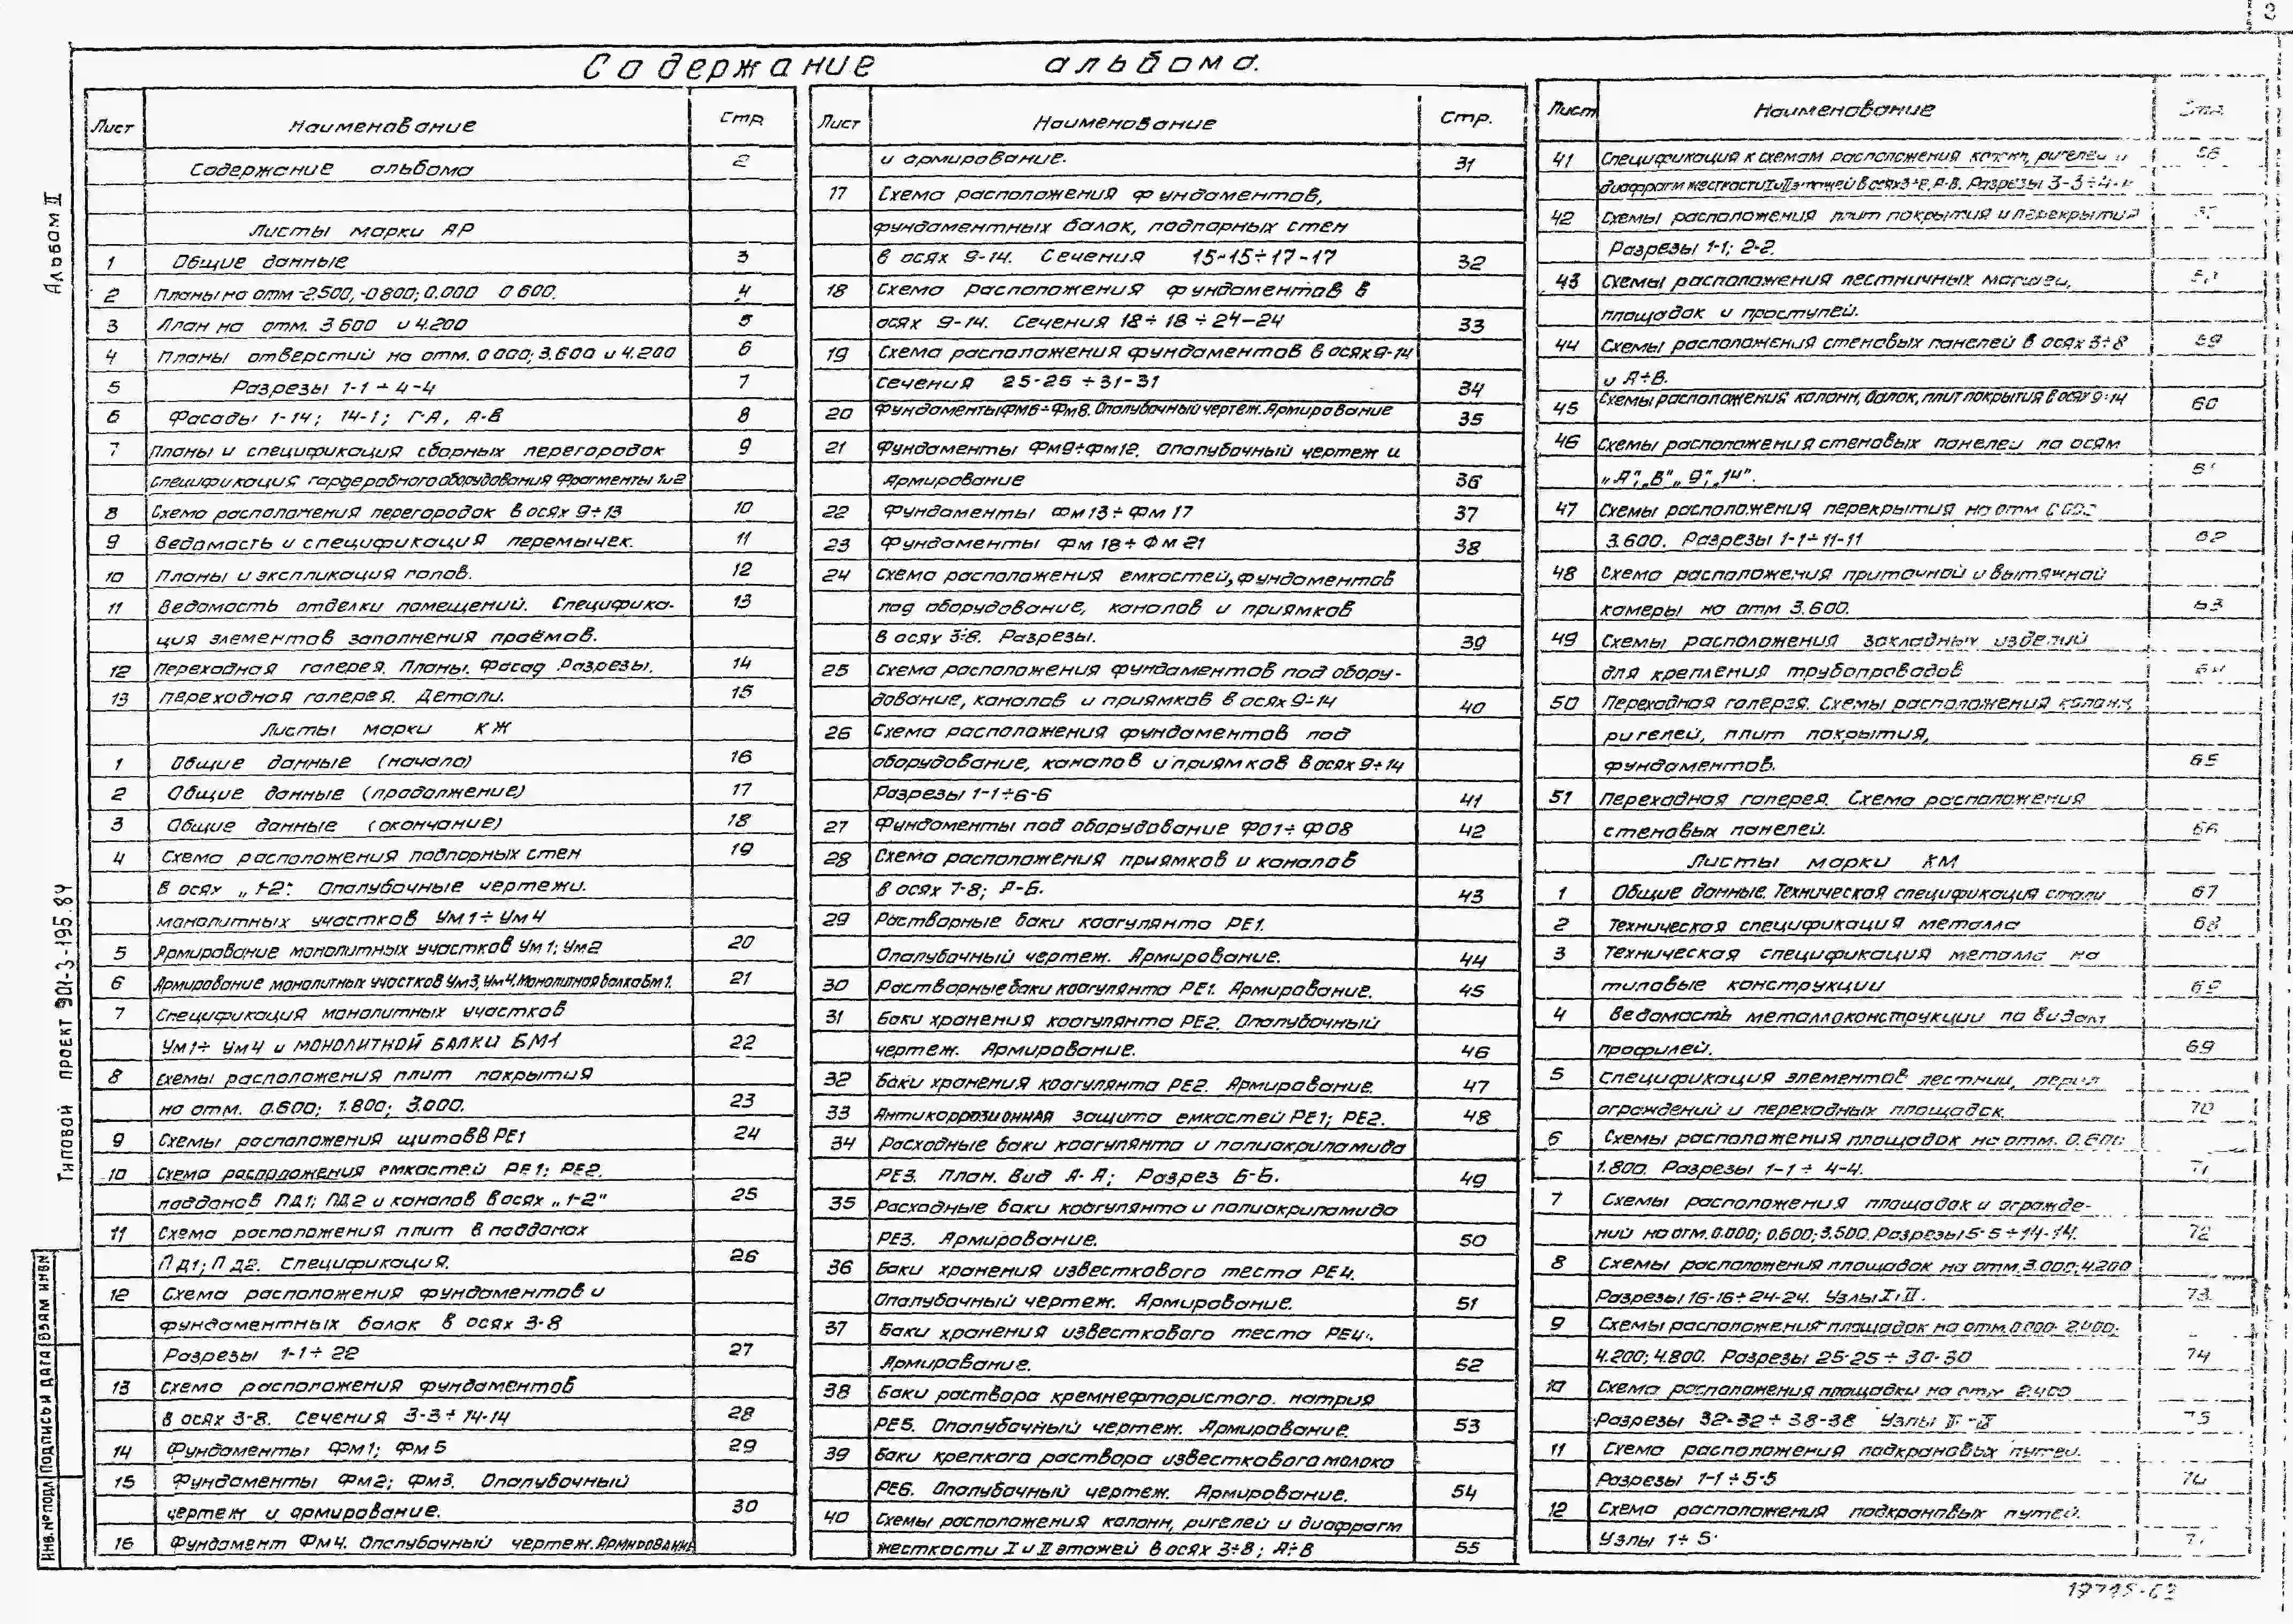 Содержание альбома.
Альбом II
Типовой проект 901-3-195.84
Инв.№подл Подпись и дата Взам инв№
Лист Наименование Стр.
Содержание альбома 2
Листы марки АР
1 Общие данные 3
2 Планы на отм -2.500, -0.800; 0.000 0.600. 4
3 План на отм. 3.600 и 4.200 5
4 Планы отверстий на отм. 0.000; 3.600 и 4.200 6
5 Разрезы 1-1 ÷ 4-4 7
6 Фасады 1-14; 14-1; Г-А, А-В 8
7 Планы и спецификация сборных перегородок 9
Спецификация гардеробного оборудования Фрагменты 1и2
8 Схема расположения перегородок в осях 9÷13 10
9 Ведомость и спецификация перемычек. 11
10 Планы и экспликация полов. 12
11 Ведомость отделки помещений. Специфика- 13
ция элементов заполнения проёмов.
12 Переходная галерея. Планы. Фасад. Разрезы. 14
13 Переходная галерея. Детали. 15
Листы марки КЖ
1 Общие данные (начало) 16
2 Общие данные (продолжение) 17
3 Общие данные (окончание) 18
4 Схема расположения подпорных стен 19
в осях „1-2". Опалубочные чертежи.
монолитных участков Ум1÷Ум4
5 Армирование монолитных участков Ум1; Ум2 20
6 Армирование монолитных участков Ум3, Ум4. Монолитная балка Бм1. 21
7 Спецификация монолитных участков
Ум1÷ Ум4 и монолитной балки БМ1 22
8 Схемы расположения плит покрытия
на отм. 0.600; 1.800; 3.000. 23
9 Схемы расположения щитов в РЕ1 24
10 Схема расположения емкостей РЕ1; РЕ2.
поддонов ПД1; ПД2 и каналов в осях „1-2" 25
11 Схема расположения плит в поддонах
ПД1; ПД2. Спецификация. 26
12 Схема расположения фундаментов и
фундаментных балок в осях 3-8
Разрезы 1-1÷22 27
13 Схема расположения фундаментов
в осях 3-8. Сечения 3-3÷14-14 28
14 Фундаменты Фм1; Фм5 29
15 Фундаменты Фм2; Фм3. Опалубочный
чертеж и армирование. 30
16 Фундамент Фм4. Опалубочный чертеж. Армирование
Лист Наименование Стр.
и армирование. 31
17 Схема расположения фундаментов,
фундаментных балок, подпорных стен
в осях 9-14. Сечения 15-15÷17-17 32
18 Схема расположения фундаментов в
осях 9-14. Сечения 18÷18÷24-24 33
19 Схема расположения фундаментов в осях 9-14
сечения 25-25÷31-31 34
20 Фундаменты Фм6÷Фм8. Опалубочный чертеж. Армирование 35
21 Фундаменты Фм9÷Фм12. Опалубочный чертеж и
армирование 36
22 Фундаменты Фм13÷Фм17 37
23 Фундаменты Фм18÷Фм21 38
24 Схема расположения емкостей, фундаментов
под оборудование, каналов и приямков
в осях 3÷8. Разрезы. 39
25 Схема расположения фундаментов под обору-
дование, каналов и приямков в осях 9÷14 40
26 Схема расположения фундаментов под
оборудование, каналов и приямков в осях 9÷14
Разрезы 1-1÷6-6 41
27 Фундаменты под оборудование Ф01÷Ф08 42
28 Схема расположения приямков и каналов
в осях 7-8; А-Б. 43
29 Растворные баки коагулянта РЕ1.
Опалубочный чертеж. Армирование. 44
30 Растворные баки коагулянта РЕ1. Армирование. 45
31 Баки хранения коагулянта РЕ2. Опалубочный
чертеж. Армирование. 46
32 Баки хранения коагулянта РЕ2. Армирование. 47
33 Антикоррозионная защита емкостей РЕ1; РЕ2. 48
34 Расходные баки коагулянта и полиакриламида
РЕ3. План. Вид А-А; Разрез Б-Б. 49
35 Расходные баки коагулянта и полиакриламида
РЕ3. Армирование. 50
36 Баки хранения известкового теста РЕ4.
Опалубочный чертеж. Армирование. 51
37 Баки хранения известкового теста РЕ4.
Армирование. 52
38 Баки раствора кремнефтористого. натрия
РЕ5. Опалубочный чертеж. Армирование. 53
39 Баки крепкого раствора известкового молока
РЕ6. Опалубочный чертеж. Армирование. 54
40 Схемы расположения колонн, ригелей и диафрагм
жесткости I и II этажей в осях 3÷8; А÷В 55
Лист Наименование Стр.
41 Спецификация к схемам расположения колонн, ригелей и 56
диафрагм жесткости I и II этажей в осях 3÷8, А-В. Разрезы 3-3÷4-4
42 Схемы расположения плит покрытия и перекрытия
Разрезы 1-1; 2-2.
43 Схемы расположения лестничных маршей,
площадок и проступей.
44 Схемы расположения стеновых панелей в осях 3÷8 59
и А÷В.
45 Схемы расположения колонн, балок, плит покрытия в осях 9÷14 60
46 Схемы расположения стеновых панелей по осям
„А"; „В"„ 9"; „14".
47 Схемы расположения перекрытия на отм 0.000
3.600. Разрезы 1-1÷11-11 62
48 Схема расположения приточной и вытяжной
камеры на отм 3.600. 63
49 Схемы расположения закладных изделий
для крепления трубопроводов 64
50 Переходная галерея. Схемы расположения колонн,
ригелей, плит покрытия,
фундаментов. 65
51 Переходная галерея. Схема расположения
стеновых панелей. 66
Листы марки КМ
1 Общие данные. Техническая спецификация стали 67
2 Техническая спецификация металла 68
3 Техническая спецификация металла на
типовые конструкции 69
4 Ведомость металлоконструкции по видам
профилей. 69
5 Спецификация элементов лестниц, перил
ограждений и переходных площадок. 70
6 Схемы расположения площадок на отм. 0.600;
1.800. Разрезы 1-1÷4-4. 71
7 Схемы расположения площадок и огражде-
ний на отм. 0.000; 0.600; 3.500. Разрезы 5-5÷14-14. 72
8 Схемы расположения площадок на отм. 3.000; 4.200
Разрезы 16-16÷24-24. Узлы I, II. 73
9 Схемы расположения площадок на отм. 0.000. 2.400;
4.200; 4.800. Разрезы 25-25÷30-30 74
10 Схема расположения площадки на отм 2.400
Разрезы 32-32÷38-38 Узлы 75
11 Схема расположения подкрановых путей.
Разрезы 1-1÷5-5 76
12 Схема расположения подкрановых путей.
Узлы 1÷5